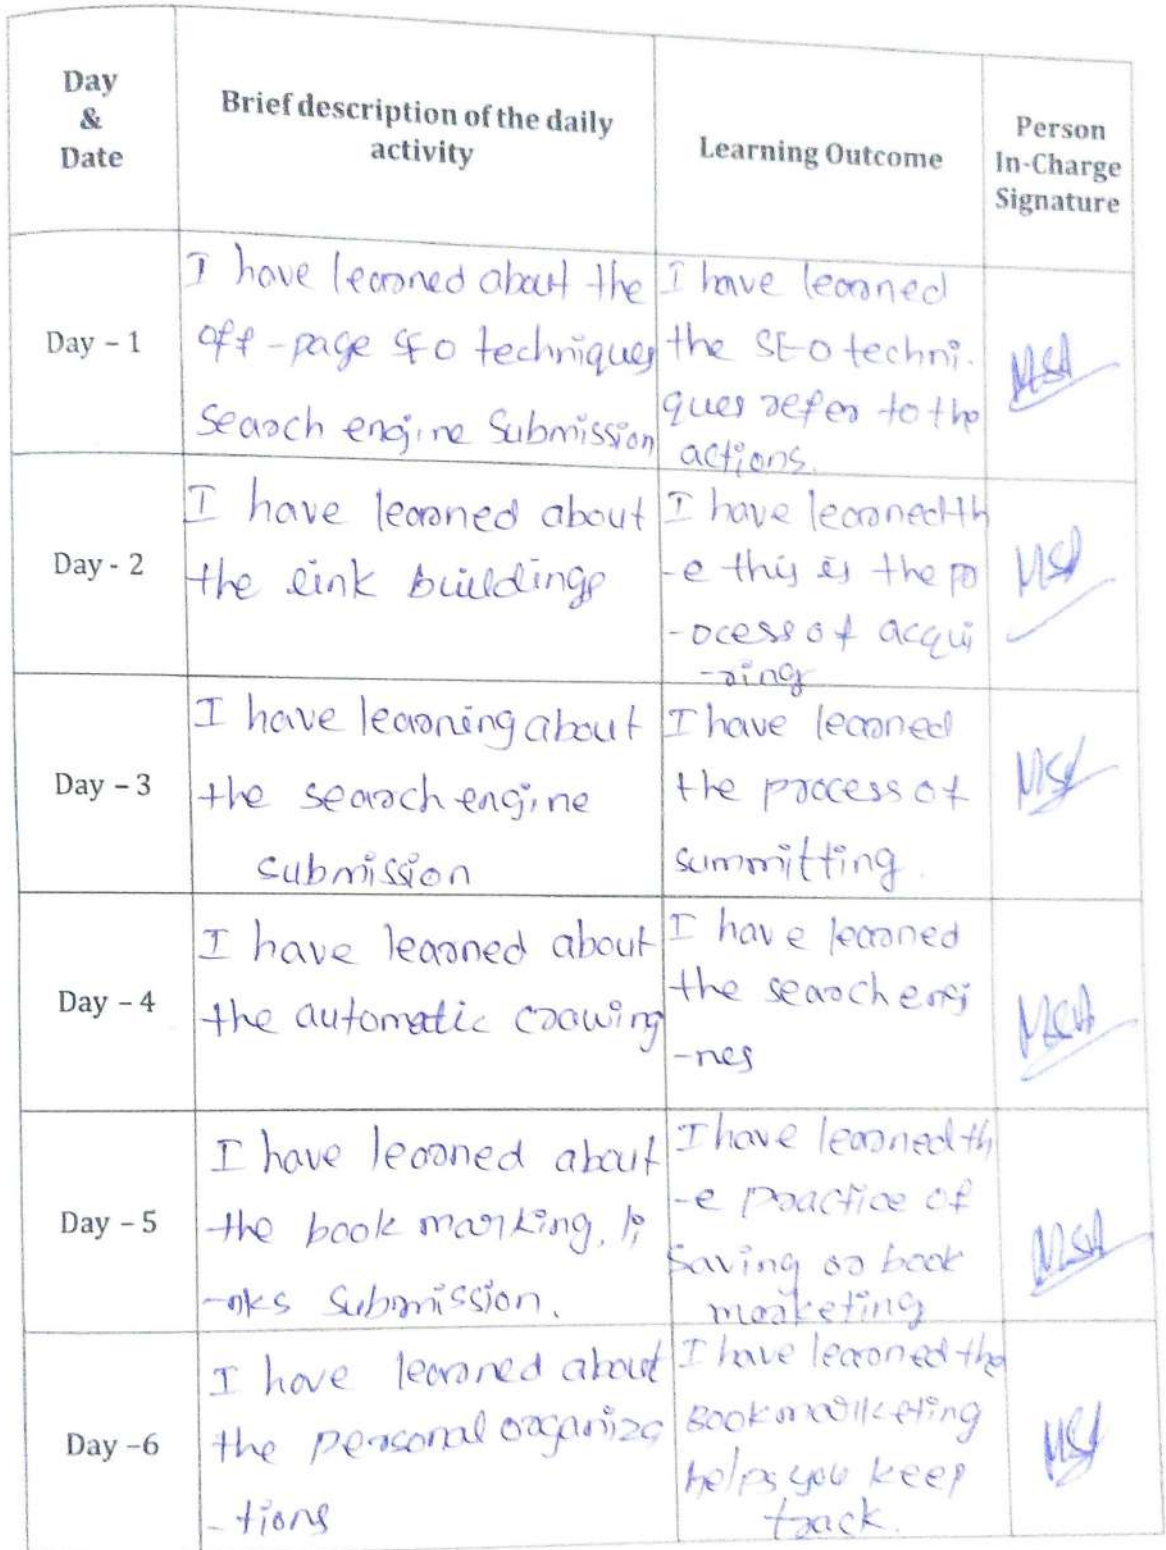 Day
&
Date
Brief description of the daily
activity
Learning Outcome
Person
In-Charge
Signature
Day – 1
I have learned about the
off-page SEO techniques
Search engine Submission
I have learned
the SEO techni-
ques refer to the
actions.
Day - 2
I have learned about
the link buildings
I have learned th
-e this is the pr
-ocess of acqui
-ring
Day – 3
I have learning about
the search engine
submission
I have learned
the process of
summitting.
Day – 4
I have learned about
the automatic crawing
I have learned
the search engi
-nes
Day – 5
I have learned about
the book marking, li
-nks Submission.
I have learned th
-e practice of
Saving or book
marketing
Day –6
I have learned about
the personal organiza
-tions
I have learned the
Book marketing
helps you keep
track.